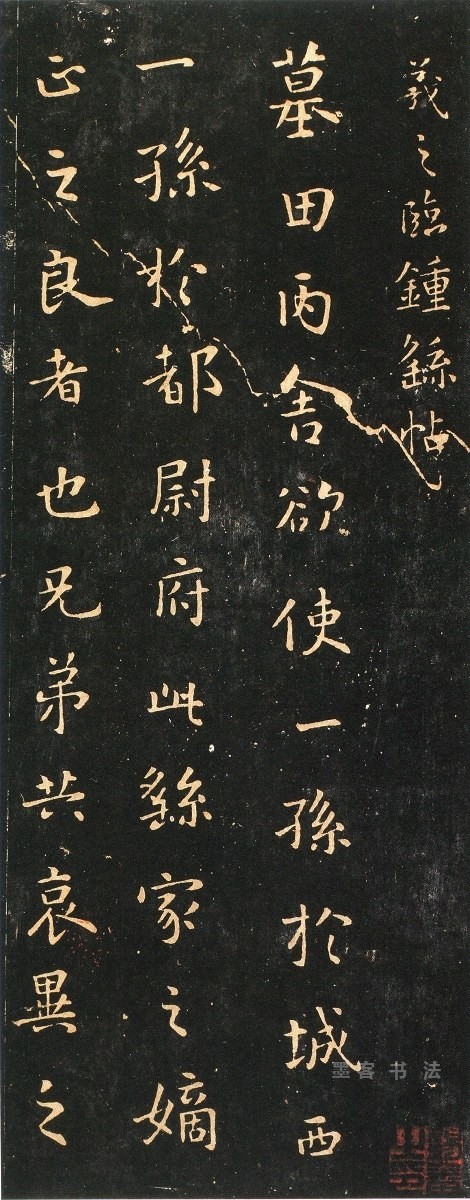 羲之臨鍾繇帖
墓田丙舍欲使一孫於城西
一孫於都尉府此繇家之嫡
正之良者也兄弟共哀異之
墨客书法